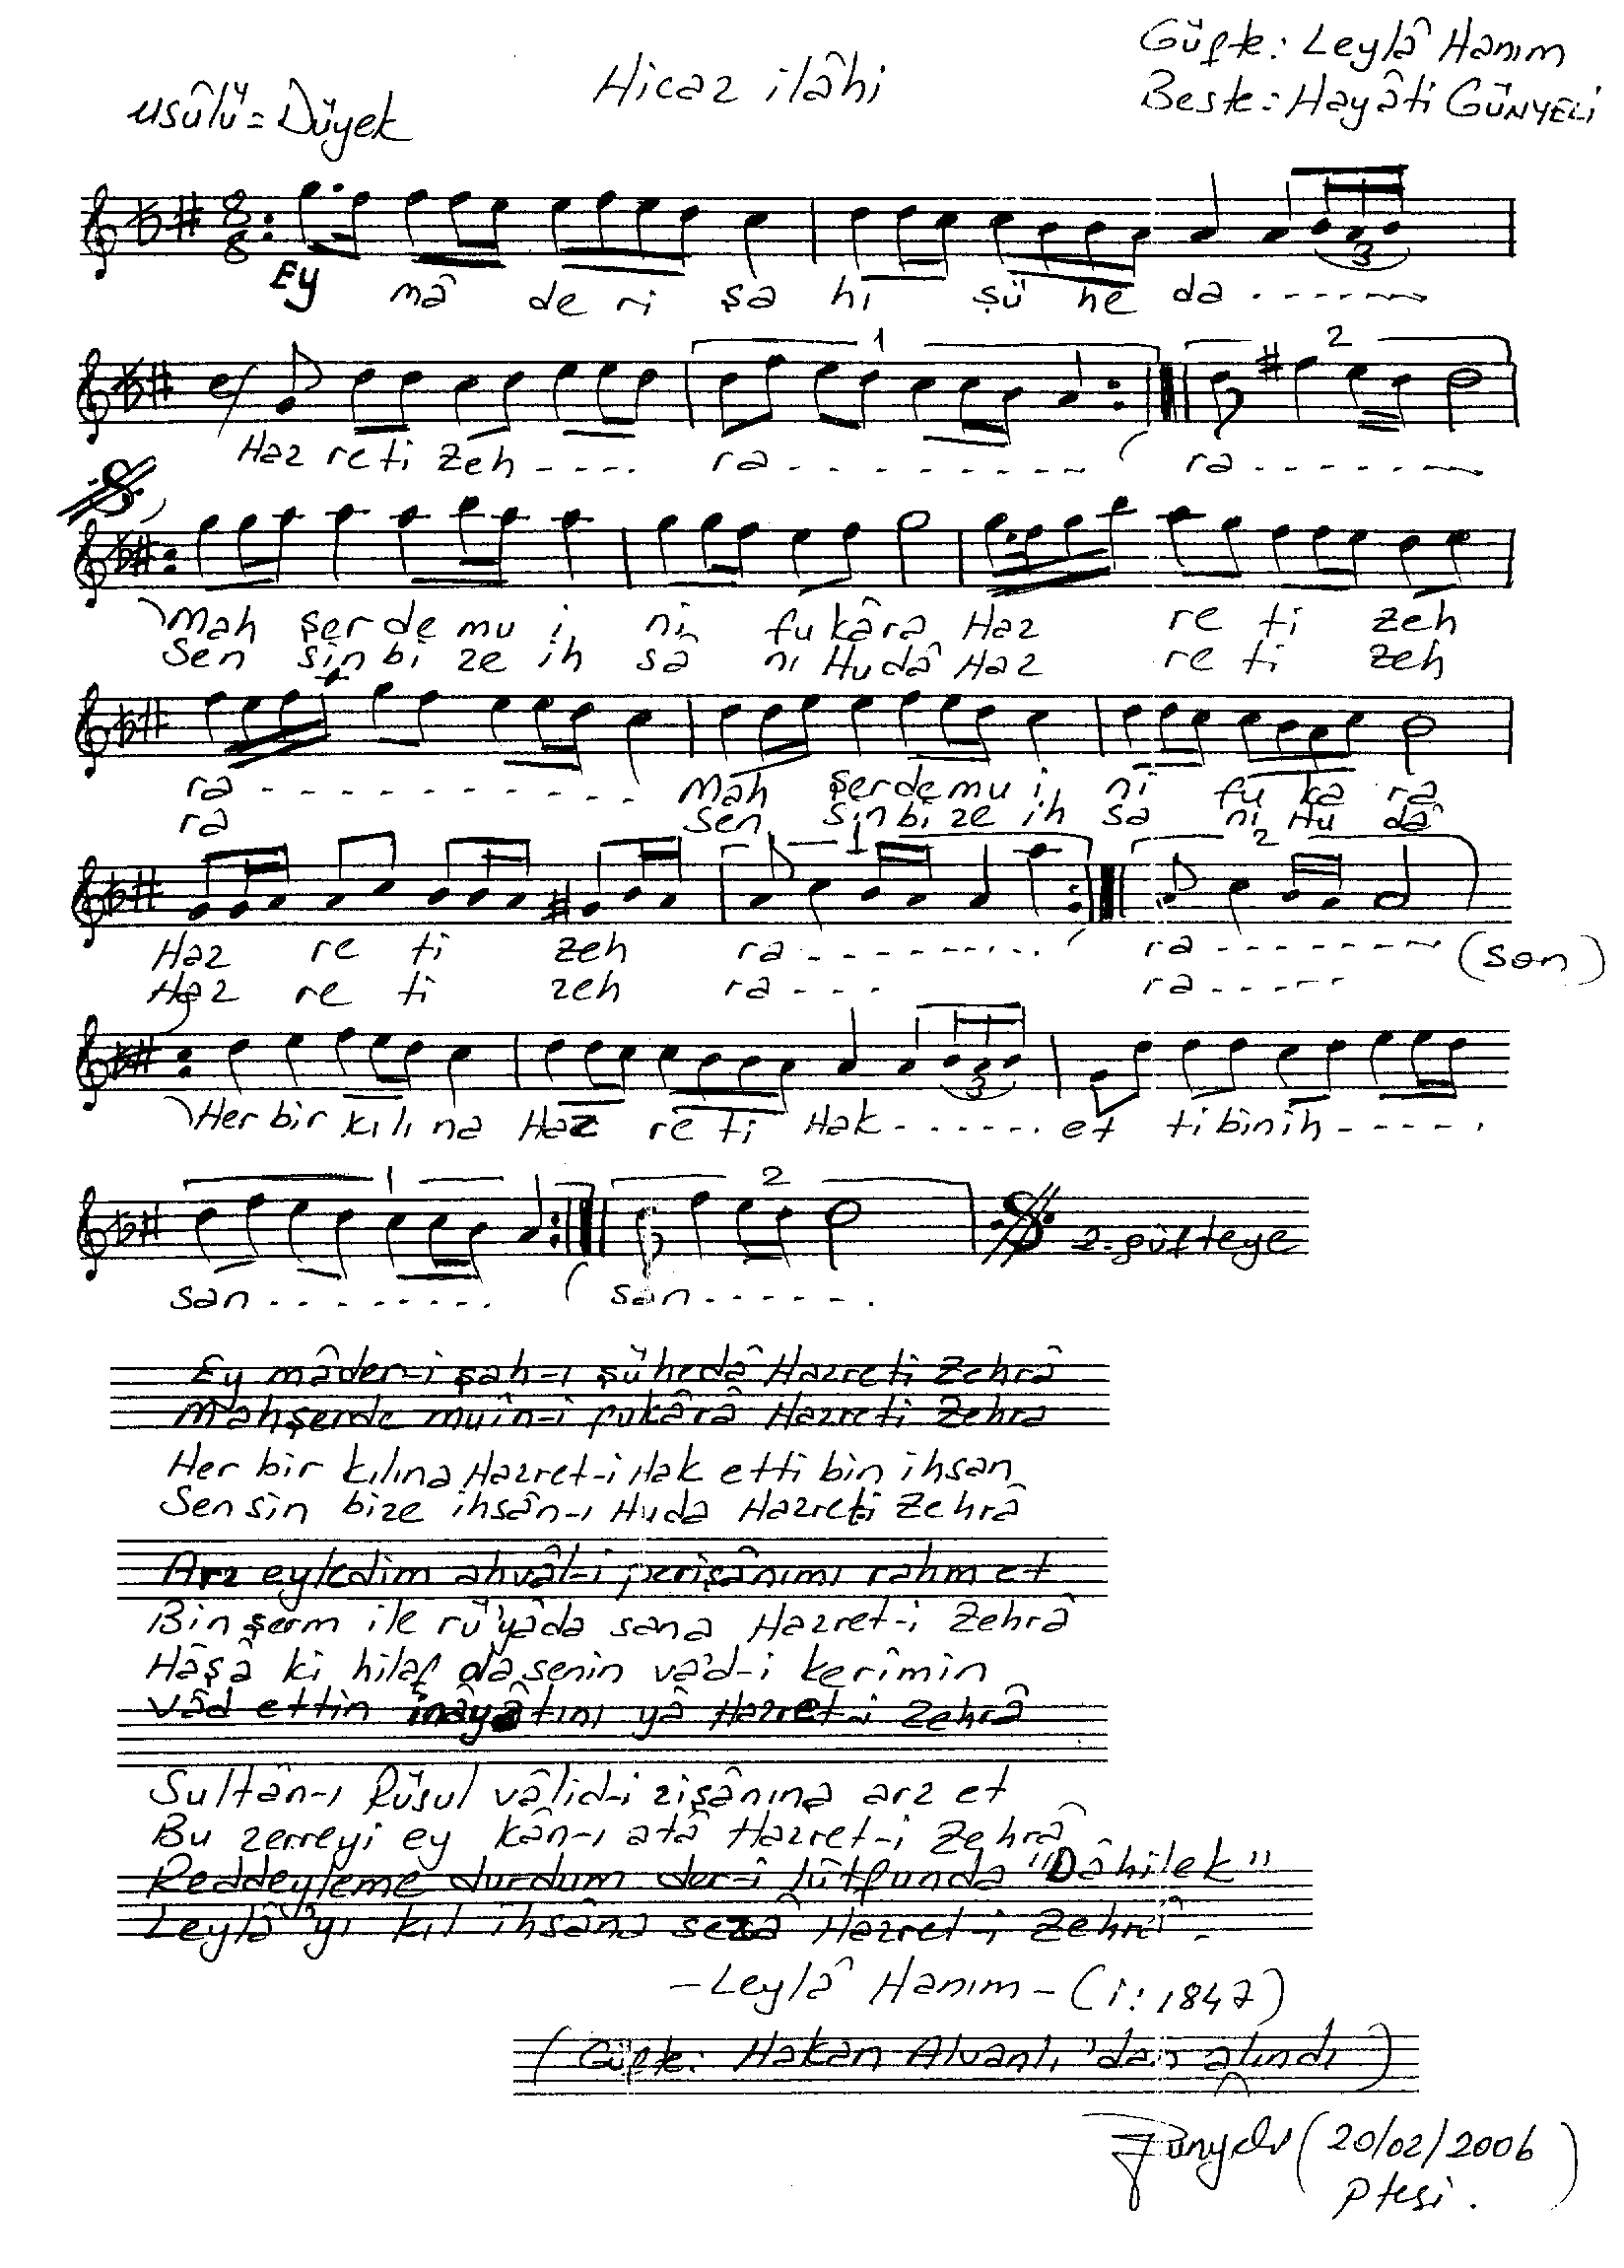 Güfte: Leylâ Hanım
Hicaz ilâhi
Beste: Hayâti GÜNYELİ
usûlü = Düyek
8
8
3
Ey mâ de ri şa hı şü he da
1 2
Haz re ti zeh ra ra
Mah şer de mu i ni fu kâ ra Haz re ti zeh
Sen sin bi ze ih sâ nı Hu dâ Haz re ti zeh
ra Mah şer de mu i ni fu ka ra
ra Sen sin bi ze ih sa nı Hu dâ
1 2
Haz re ti zeh ra ra (son)
Haz re ti zeh ra ra
3
Her bir kı lı na Haz re ti Hak et ti bin ih
1 2
2. güfteye
san san
Ey mâder-i şah-ı şühedâ Hazreti Zehrâ
Mahşerde muîn-i fukârâ Hazreti Zehra
Her bir kılına Hazret-i Hak etti bin ihsan
Sensin bize ihsân-ı Huda Hazreti Zehrâ
Arz eyledim ahvâl-i perişânımı rahm et
Bin şerm ile rü'yâda sana Hazret-i Zehrâ
Hâşâ ki hilaf ola senin va'd-i kerîmin
Vâd ettin inâyâtını yâ Hazret-i Zehrâ
Sultân-ı Rüsul vâlid-i zişânına arz et
Bu zerreyi ey kân-ı atâ Hazret-i Zehrâ
Reddeyleme durdum der-i lütfunda "Dâhilek"
Leylâ'yı kıl ihsâna sezâ Hazret-i Zehrâ.
-Leylâ Hanım- (i: 1847)
(Güfte: Hakan Alvanlı'dan alındı)
Günyeli (20/02/2006)
Ptesi.